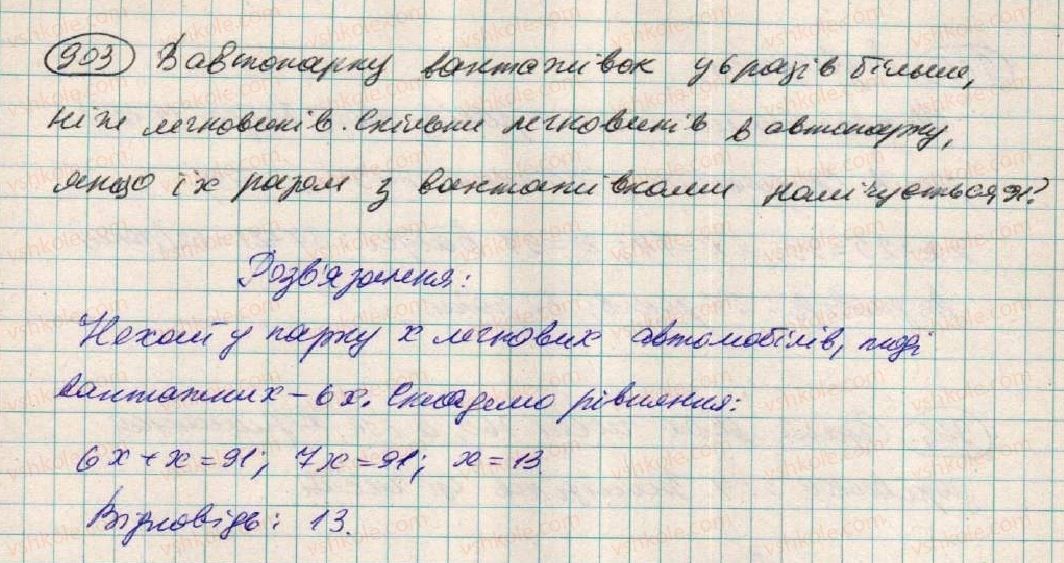 903 В автопарку вантажівок у 6 разів більше,
ніж легковиків. Скільки легковиків в автопарку,
якщо їх разом з вантажівками налічується 91?
Розв'язання:
Нехай у парку x легкових автомобілів, тоді
вантажних - 6x. Складемо рівняння:
6x + x = 91; 7x = 91; x = 13
Відповідь: 13.